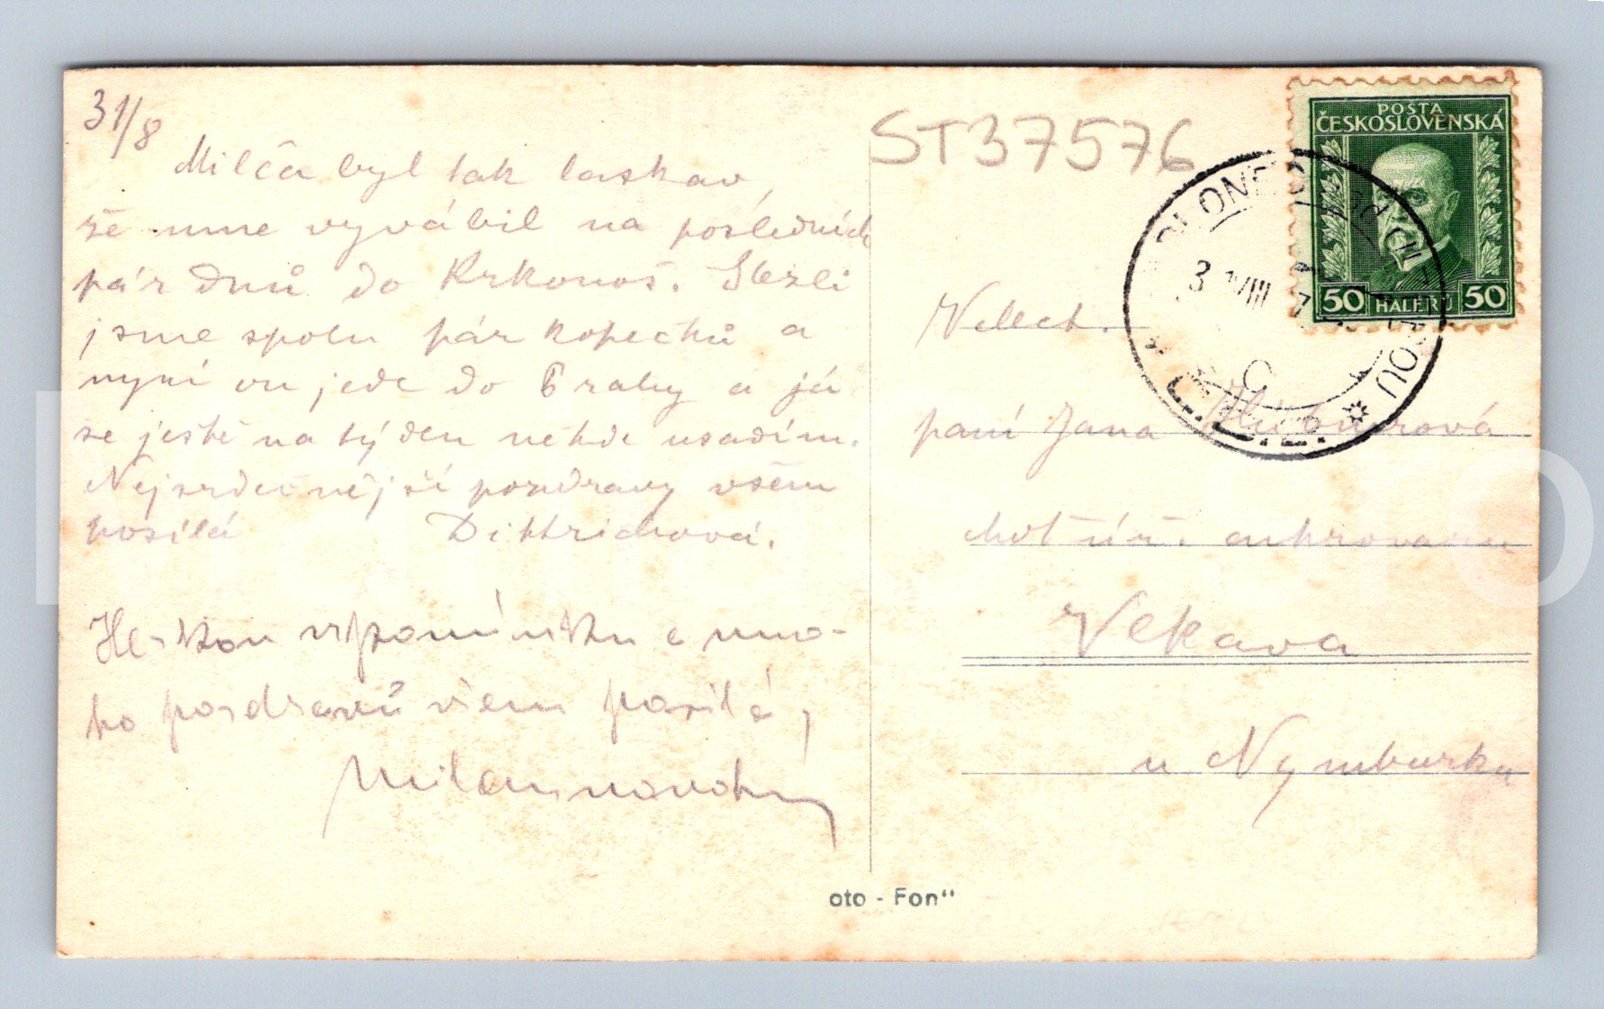 31/8
Milča byl tak laskav,
že mne vyvábil na posledních
pár dnů do Krkonoš. Slezli
jsme spolu pár kopečků a
nyní on jede do Prahy a já
se ještě na týden někde usadím.
Nejsrdečnější pozdravy všem
posílá Dittrichová.
Hezkou vzpomínku a mno-
ho pozdravů všem posílá,
Milan
ST37576
POŠTA
ČESKOSLOVENSKÁ
50 HALÉŘŮ 50
Velect.
paní Jana
choť úř. cukrovaru
Vekava
u Nymburka
oto - Fon"